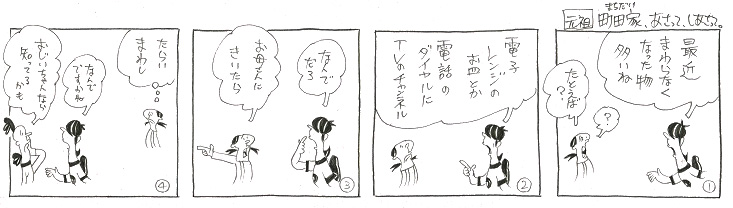 元祖 町田家、あさって、しあさって。
まちだけ
最近
まわらなく
なった物
多いね
?
たとえば
?
①
電子
レンジの
お皿とか
電話の
ダイヤルに
TVのチャンネル
②
なんで
だろ
お母さんに
きいたら
③
たらい
まわし
なんで
ですかね
おじいちゃんなら
知ってる
かも
④